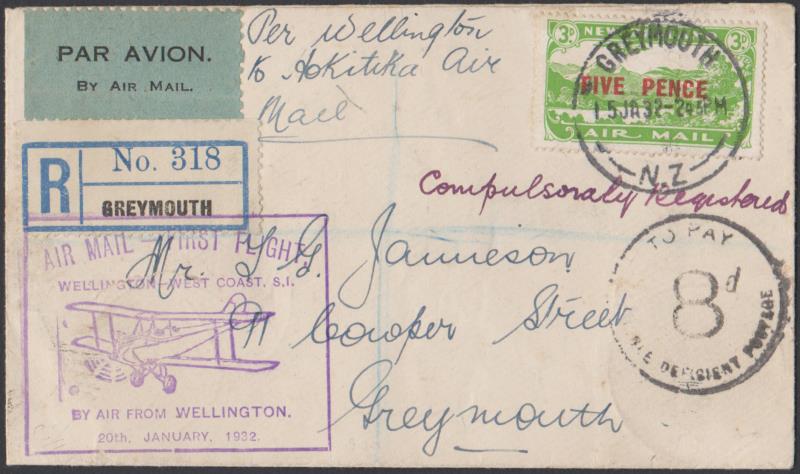 PAR AVION.
BY AIR MAIL.
Per Wellington
to Hokitika Air
Mail
3D NEW 3D
GREYMOUTH
FIVE PENCE
15JA32
AIR MAIL
N.Z
R No. 318
GREYMOUTH
Compulsoraly Registered
TO PAY
8d
DEFICIENT POSTAGE
AIR MAIL - FIRST FLIGHT,
WELLINGTON-WEST COAST. S.I.
BY AIR FROM WELLINGTON.
20th, JANUARY, 1932.
Mr. L G. Jamieson
11 Cowper Street
Greymouth